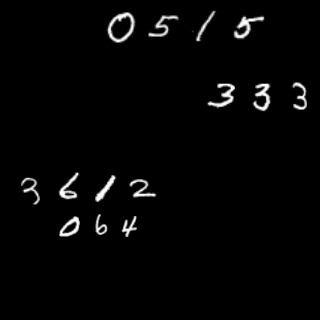 0515
333
3612
064